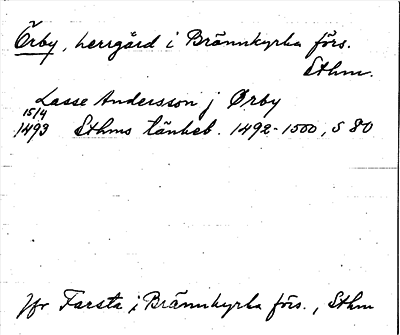 Örby, herrgård i Brännkyrka förs.
Sthm.
Lasse Andersson j Ørby
15/4
1493 Sthms tänkeb. 1492-1500, s 80
Jfr Farsta i Brännkyrka förs., Sthm